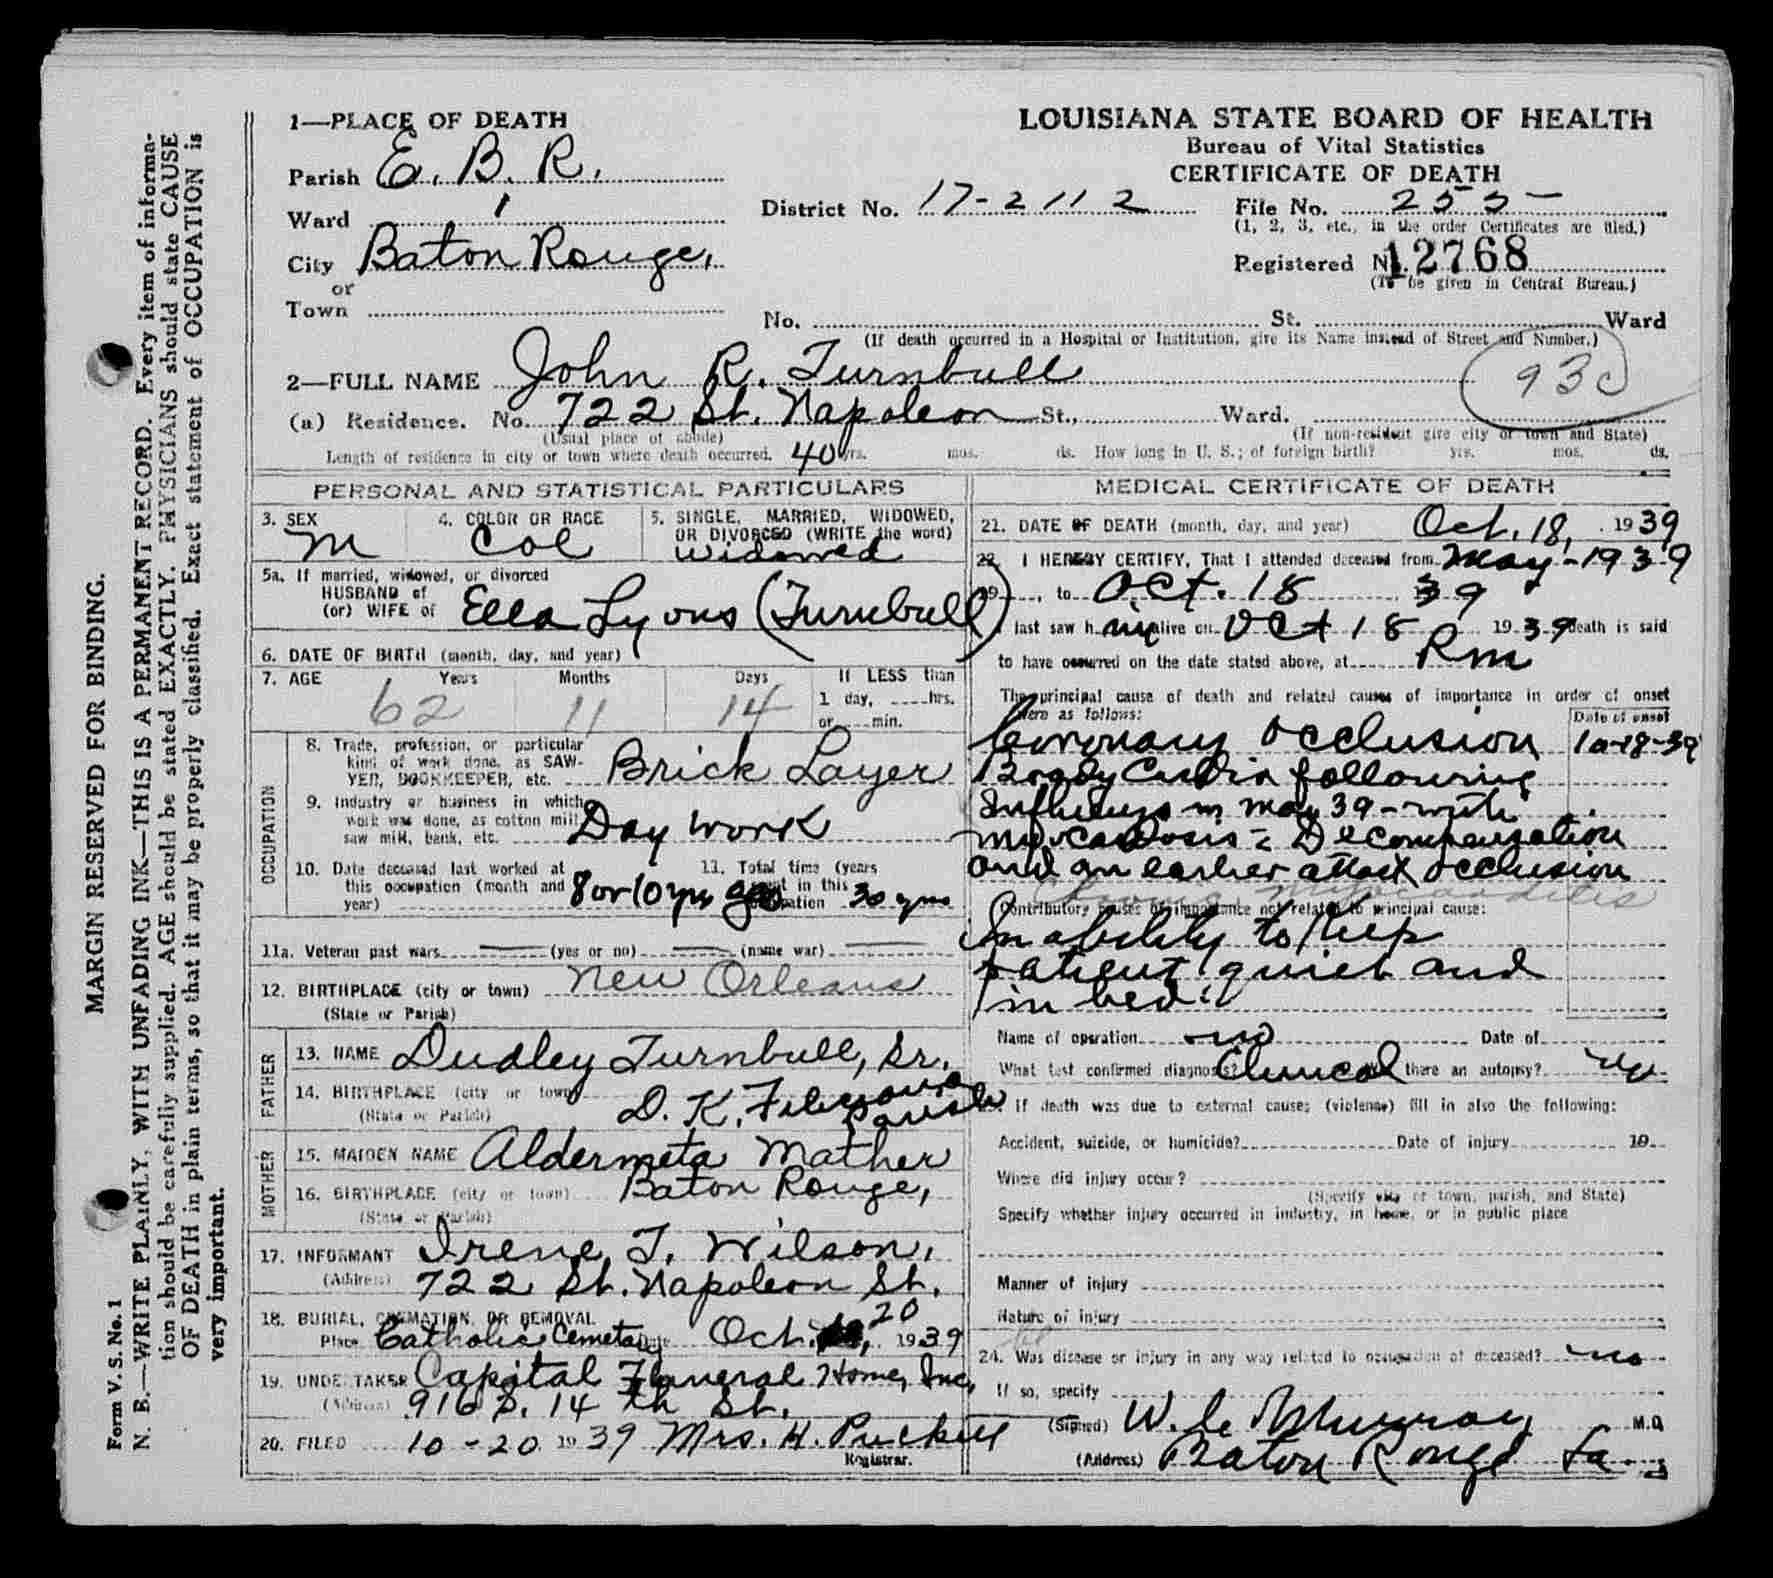 LOUISIANA STATE BOARD OF HEALTH
Bureau of Vital Statistics
CERTIFICATE OF DEATH
1—PLACE OF DEATH
Parish E. B. R.
Ward 1
City Baton Rouge,
or
Town
District No. 17-2112
File No. 255-
(1, 2, 3, etc., in the order Certificates are filed.)
Registered No. 12768
(To be given in Central Bureau.)
No. St. Ward
(If death occurred in a Hospital or Institution, give its Name instead of Street and Number.)
2—FULL NAME John R. Turnbull
93c
(a) Residence. No. 722 St. Napoleon St., Ward.
(Usual place of abode) (If non-resident give city or town and State)
Length of residence in city or town where death occurred. 40 yrs. mos. ds. How long in U. S.; of foreign birth? yrs. mos. ds.
PERSONAL AND STATISTICAL PARTICULARS
3. SEX M
4. COLOR OR RACE Col
5. SINGLE, MARRIED, WIDOWED, OR DIVORCED (WRITE the word) Widowed
5a. If married, widowed, or divorced
HUSBAND of
(or) WIFE of Ella Lyons (Turnbull)
6. DATE OF BIRTH (month, day, and year)
7. AGE Years 62 Months 11 Days 14 If LESS than
1 day, hrs.
or min.
OCCUPATION
8. Trade, profession, or particular
kind of work done, as SAW-
YER, BOOKKEEPER, etc. Brick Layer
9. Industry or business in which
work was done, as cotton mill,
saw mill, bank, etc. Day work
10. Date deceased last worked at
this occupation (month and
year) 8 or 10 yrs ago
11. Total time (years
spent in this
occupation 30 yrs
11a. Veteran past wars (yes or no) (name war)
12. BIRTHPLACE (city or town) New Orleans
(State or Parish)
FATHER
13. NAME Dudley Turnbull, Sr.
14. BIRTHPLACE (city or town) D. K. Feliciana
(State or Parish) Parish
MOTHER
15. MAIDEN NAME Aldermeta Mather
16. BIRTHPLACE (city or town) Baton Rouge,
(State or Parish)
17. INFORMANT Irene T. Wilson,
(Address) 722 St. Napoleon St.
18. BURIAL, CREMATION, OR REMOVAL
Place Catholic Cemetery Date Oct. 20, 1939
19. UNDERTAKER Capital Funeral Home, Inc,
(Address) 916 S. 14 th St.
20. FILED 10-20 1939 Mrs. H. Puckett
Registrar.
MEDICAL CERTIFICATE OF DEATH
21. DATE OF DEATH (month, day, and year) Oct. 18, 1939
22. I HEREBY CERTIFY, That I attended deceased from May-1939
19 , to Oct. 18 39
I last saw him alive on Oct 18 1939 death is said
to have occurred on the date stated above, at Pm
The principal cause of death and related causes of importance in order of onset
were as follows:
Date of onset
Coronary occlusion 10-18-39
following
Influenza in May 39 - with
myocardosis = Decompensation
and an earlier attack occlusion
Chronic Myocarditis
Contributory causes of importance not related to principal cause:
Inability to keep
patient quiet and
in bed.
Name of operation no Date of
What test confirmed diagnosis? Clinical there an autopsy? no
23. If death was due to external causes (violence) fill in also the following:
Accident, suicide, or homicide? Date of injury 19
Where did injury occur?
(Specify city or town, parish, and State)
Specify whether injury occurred in industry, in home, or in public place
Manner of injury
Nature of injury
24. Was disease or injury in any way related to occupation of deceased? no
If so, specify
(Signed) M.D.
(Address) Baton Rouge La.
MARGIN RESERVED FOR BINDING.
N. B.—WRITE PLAINLY, WITH UNFADING INK—THIS IS A PERMANENT RECORD. Every item of informa-
tion should be carefully supplied. AGE should be stated EXACTLY. PHYSICIANS should state CAUSE
OF DEATH in plain terms, so that it may be properly classified. Exact statement of OCCUPATION is
very important.
Form V. S. No. 1